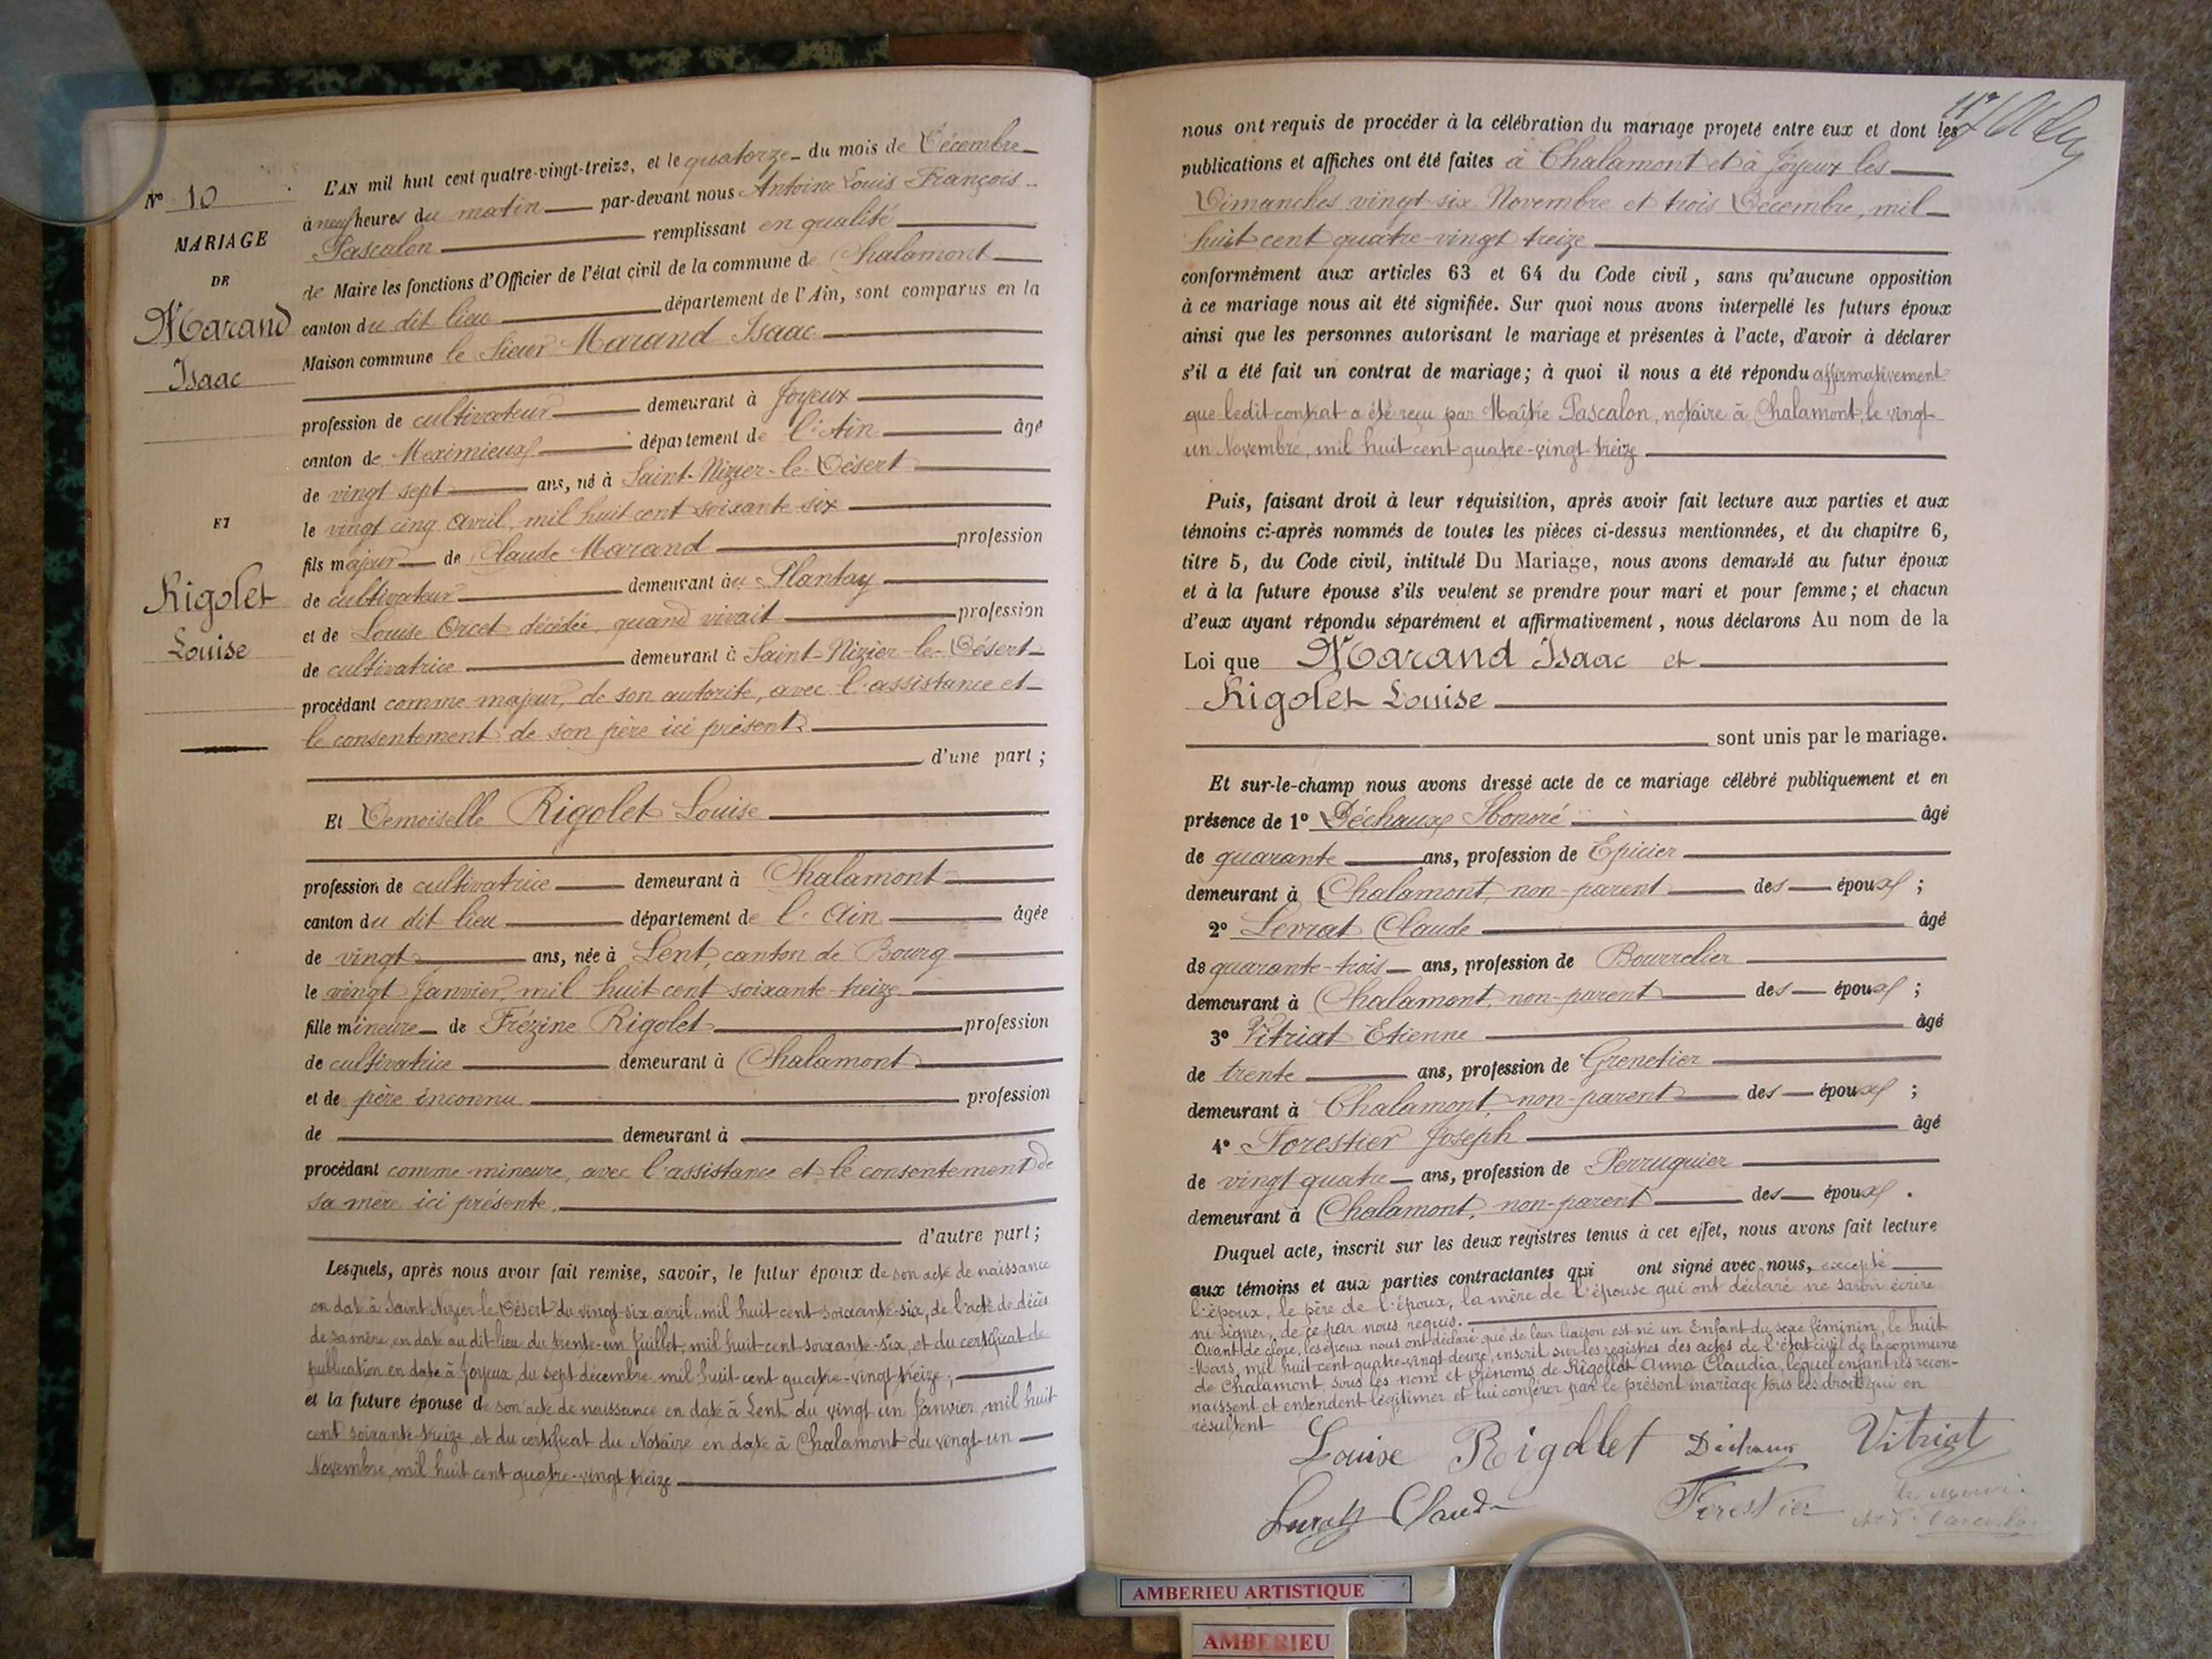 N° 10
MARIAGE
DE
Marand
Isaac
ET
Rigolet
Louise
L'AN mil huit cent quatre-vingt-treize, et le quatorze du mois de Décembre
à neuf heures du matin par-devant nous Antoine Louis François
Pascalon remplissant en qualité
de Maire les fonctions d'Officier de l'état civil de la commune de Chalamont
canton du dit lieu département de l'Ain, sont comparus en la
Maison commune le Sieur Marand Isaac
profession de cultivateur demeurant à Joyeux
canton de Meximieux département de l'Ain âgé
de vingt sept ans, né à Saint-Nizier-le-Désert
le vingt cinq Avril, mil huit cent soixante-six
fils majeur de Claude Marand profession
de cultivateur demeurant au Plantay
et de Louise Orcet décédée, quand vivait profession
de cultivatrice demeurant à Saint-Nizier-le-Désert
procédant comme majeur, de son autorité, avec l'assistance et
le consentement de son père ici présent.
d'une part ;
Et Demoiselle Rigolet Louise
profession de cultivatrice demeurant à Chalamont
canton du dit lieu département de l'Ain âgée
de vingt ans, née à Lent, canton de Bourg
le vingt Janvier, mil huit cent soixante-treize
fille mineure de Frézine Rigolet profession
de cultivatrice demeurant à Chalamont
et de père inconnu profession
de demeurant à
procédant comme mineure, avec l'assistance et le consentement de
sa mère ici présente.
d'autre part ;
Lesquels, après nous avoir fait remise, savoir, le futur époux de son acte de naissance
en date à Saint-Nizier-le-Désert du vingt-six avril, mil huit-cent-soixante-six, de l'acte de décès
de sa mère, en date au dit-lieu du trente-un Juillet, mil huit-cent-soixante-six, et du certificat de
publication en date à Joyeux, du sept décembre mil huit-cent quatre-vingt treize ;
et la future épouse de son acte de naissance en date à Lent du vingt un Janvier, mil huit
cent soixante-treize, et du certificat du Notaire en date à Chalamont du vingt-un
Novembre, mil huit cent quatre-vingt treize
nous ont requis de procéder à la célébration du mariage projeté entre eux et dont les
publications et affiches ont été faites à Chalamont et à Joyeux les
Dimanches vingt-six Novembre et trois Décembre, mil
huit cent quatre-vingt treize
conformément aux articles 63 et 64 du Code civil, sans qu'aucune opposition
à ce mariage nous ait été signifiée. Sur quoi nous avons interpellé les futurs époux
ainsi que les personnes autorisant le mariage et présentes à l'acte, d'avoir à déclarer
s'il a été fait un contrat de mariage ; à quoi il nous a été répondu affirmativement
que ledit contrat a été reçu par Maître Pascalon, notaire à Chalamont, le vingt-
un Novembre, mil huit cent quatre-vingt-treize
Puis, faisant droit à leur réquisition, après avoir fait lecture aux parties et aux
témoins ci-après nommés de toutes les pièces ci-dessus mentionnées, et du chapitre 6,
titre 5, du Code civil, intitulé Du Mariage, nous avons demandé au futur époux
et à la future épouse s'ils veulent se prendre pour mari et pour femme ; et chacun
d'eux ayant répondu séparément et affirmativement, nous déclarons Au nom de la
Loi que Marand Isaac et
Rigolet Louise
sont unis par le mariage.
Et sur-le-champ nous avons dressé acte de ce mariage célébré publiquement et en
présence de 1° Déchaux Honoré âgé
de quarante ans, profession de Epicier
demeurant à Chalamont, non-parent des époux ;
2° Levrat Claude âgé
de quarante-trois ans, profession de Bourrelier
demeurant à Chalamont, non-parent des époux ;
3° Vitriat Etienne âgé
de trente ans, profession de Grenetier
demeurant à Chalamont, non-parent des époux ;
4° Forestier Joseph âgé
de vingt quatre ans, profession de Perruquier
demeurant à Chalamont, non-parent des époux .
Duquel acte, inscrit sur les deux registres tenus à cet effet, nous avons fait lecture
aux témoins et aux parties contractantes qui ont signé avec nous, excepté
l'époux, le père de l'époux, la mère de l'épouse qui ont déclaré ne savoir écrire
ni signer, de ce par nous requis.
Avant de clore, les époux nous ont déclaré que de leur liaison est né un Enfant du sexe féminin, le huit
Mars, mil huit-cent-quatre-vingt douze, inscrit sur les registres des actes de l'état civil de la commune
de Chalamont, sous les nom et prénoms de Rigollet Anna Claudia, lequel enfant ils recon-
naissent et entendent légitimer et lui conférer par le présent mariage tous les droits qui en
résultent
Louise Rigollet Déchaux Vitriat
Levrat Claude Forestier le maire
AMBERIEU ARTISTIQUE
AMBERIEU